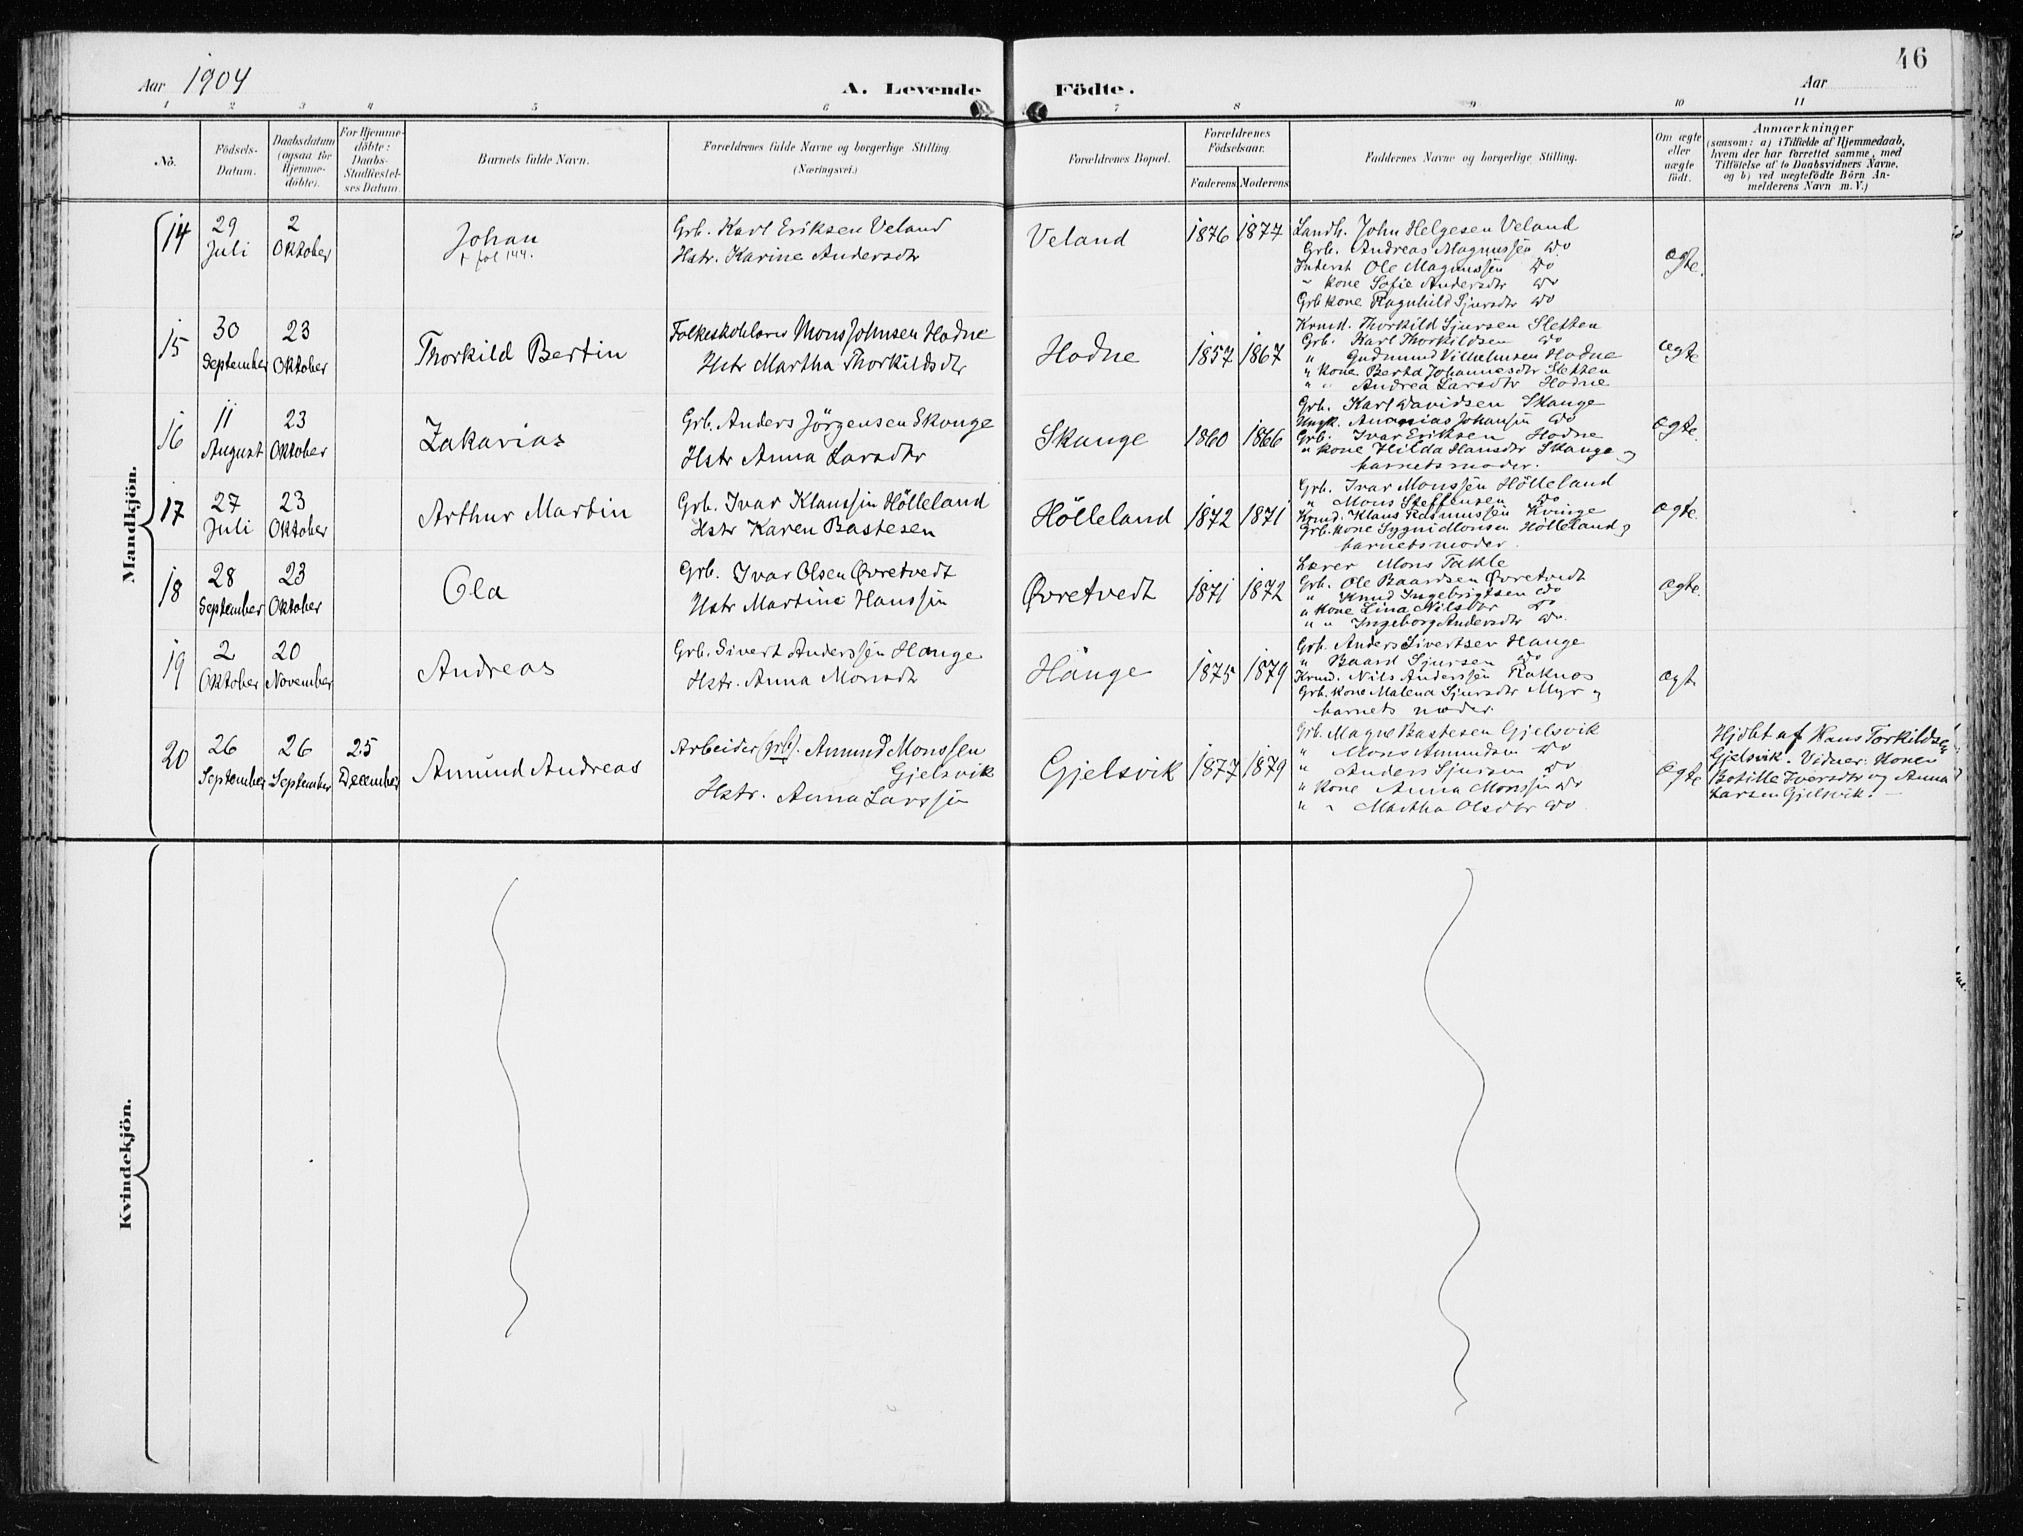 46
Aar 1904
A. Levende Födte.
Aar
1 2 3 4 5 6 7 8 9 10 11
No.
Födsels-Datum.
Daabsdatum (ogsaa for Hjemmedöbte).
For Hjemmedöbte: Daabs-Stadfæstelses Datum.
Barnets fulde Navn.
Forældrenes fulde Navne og borgerlige Stilling (Næringsvei.)
Forældrenes Bopæl.
Forældrenes Födselsaar.
Faderens. Moderens.
Faddernes Navne og borgerlige Stilling.
Om ægte eller uægte födt.
Anmærkninger
(saasom: a) i Tilfælde af Hjemmedaab,
hvem der har forrettet samme, med
Tilföielse af to Daabsvidners Navne,
og b) ved uægtefödte Börn An-
melderens Navn m. V.)
Mandkjön.
14
29 Juli
2 Oktober
Johan
+ fol 144.
Grb. Karl Eriksen Veland
Hstr. Karine Andersdtr
Veland
1876 1877
Landh. John Helgesen Veland
Grb. Andreas Magnussen do
Inderst Ole Magnussen do
" kone Sofie Andersdtr do
Grb kone Ragnhild Sjursdtr do
ægte.
15
30 September
23 Oktober
Thorkild Bertin
Folkeskolelærer Mons Johnsen Hodne
Hstr Martha Thorkildsdtr
Hodne
1857 1867
Krmd. Thorkild Sjursen Sletten
Grb. Karl Thorkildsen do
" Gudmund Vilhelmsen Hodne
" kone Berta Johannesdtr Sletten
" " Andrea Larsdtr Hodne
ægte
16
11 August
23 Oktober
Zakarias
Grb. Anders Jörgensen Skonge
Hstr Anna Larsdtr
Skange
1860 1866
Grb. Karl Davidsen Skange
Ungk. Ananias Johansen do
Grb. Ivar Eriksen Hodne
" kone Hilda Hansdtr Skange og
barnets moder.
ægte.
17
27 Juli
23 Oktober
Arthur Martin
Grb. Ivar Klaussen Hölleland
Hstr Karen Bastesen
Hölleland
1872 1871
Grb. Ivar Monssen Hölleland
" Mons Steffensen do
Krmd. Klaus Rasmussen Kvinge
Grb. kone Sygni Monsen Hölleland og
barnets moder.
ægte.
18
28 September
23 Oktober
Ola
Grb. Ivar Olsen Øvretvedt
Hstr Martine Hanssen
Øvretvedt
1871 1872
Lærer Mons Takle
Grb. Ole Baardsen Øvretvedt
" Knud Ingebrigtsen do
" kone Lina Nilsdtr do
" " Ingeborg Andersdtr do
ægte.
19
2 Oktober
20 November
Andreas
Grb. Sivert Anderssen Hange
Hstr. Anna Monsdtr
Hange
1875 1879
Grb. Anders Sivertsen Hange
" Baard Sjursen do
Krmd. Nils Anderssen Raknes
Grb. kone Malena Sjursdtr Myr og
barnets moder.
ægte
20
26 September
26 September
25 December
Amund Andreas
Arbeider (grb). Amund Monssen
Gjelsvik
Hstr. Anna Larssen
Gjelsvik
1877 1879
Grb. Magne Bastesen Gjelsvik
" Mons Amundsen do
" Anders Sjursen do
" kone Anna Monssen do
" " Martha Olsdtr do
ægte
Hjdbt af Hans Torkildsen
Gjelsvik. Vidner: Konen
Botille Iversdtr og Anna
Larsen Gjelsvik.
Kvindekjön.